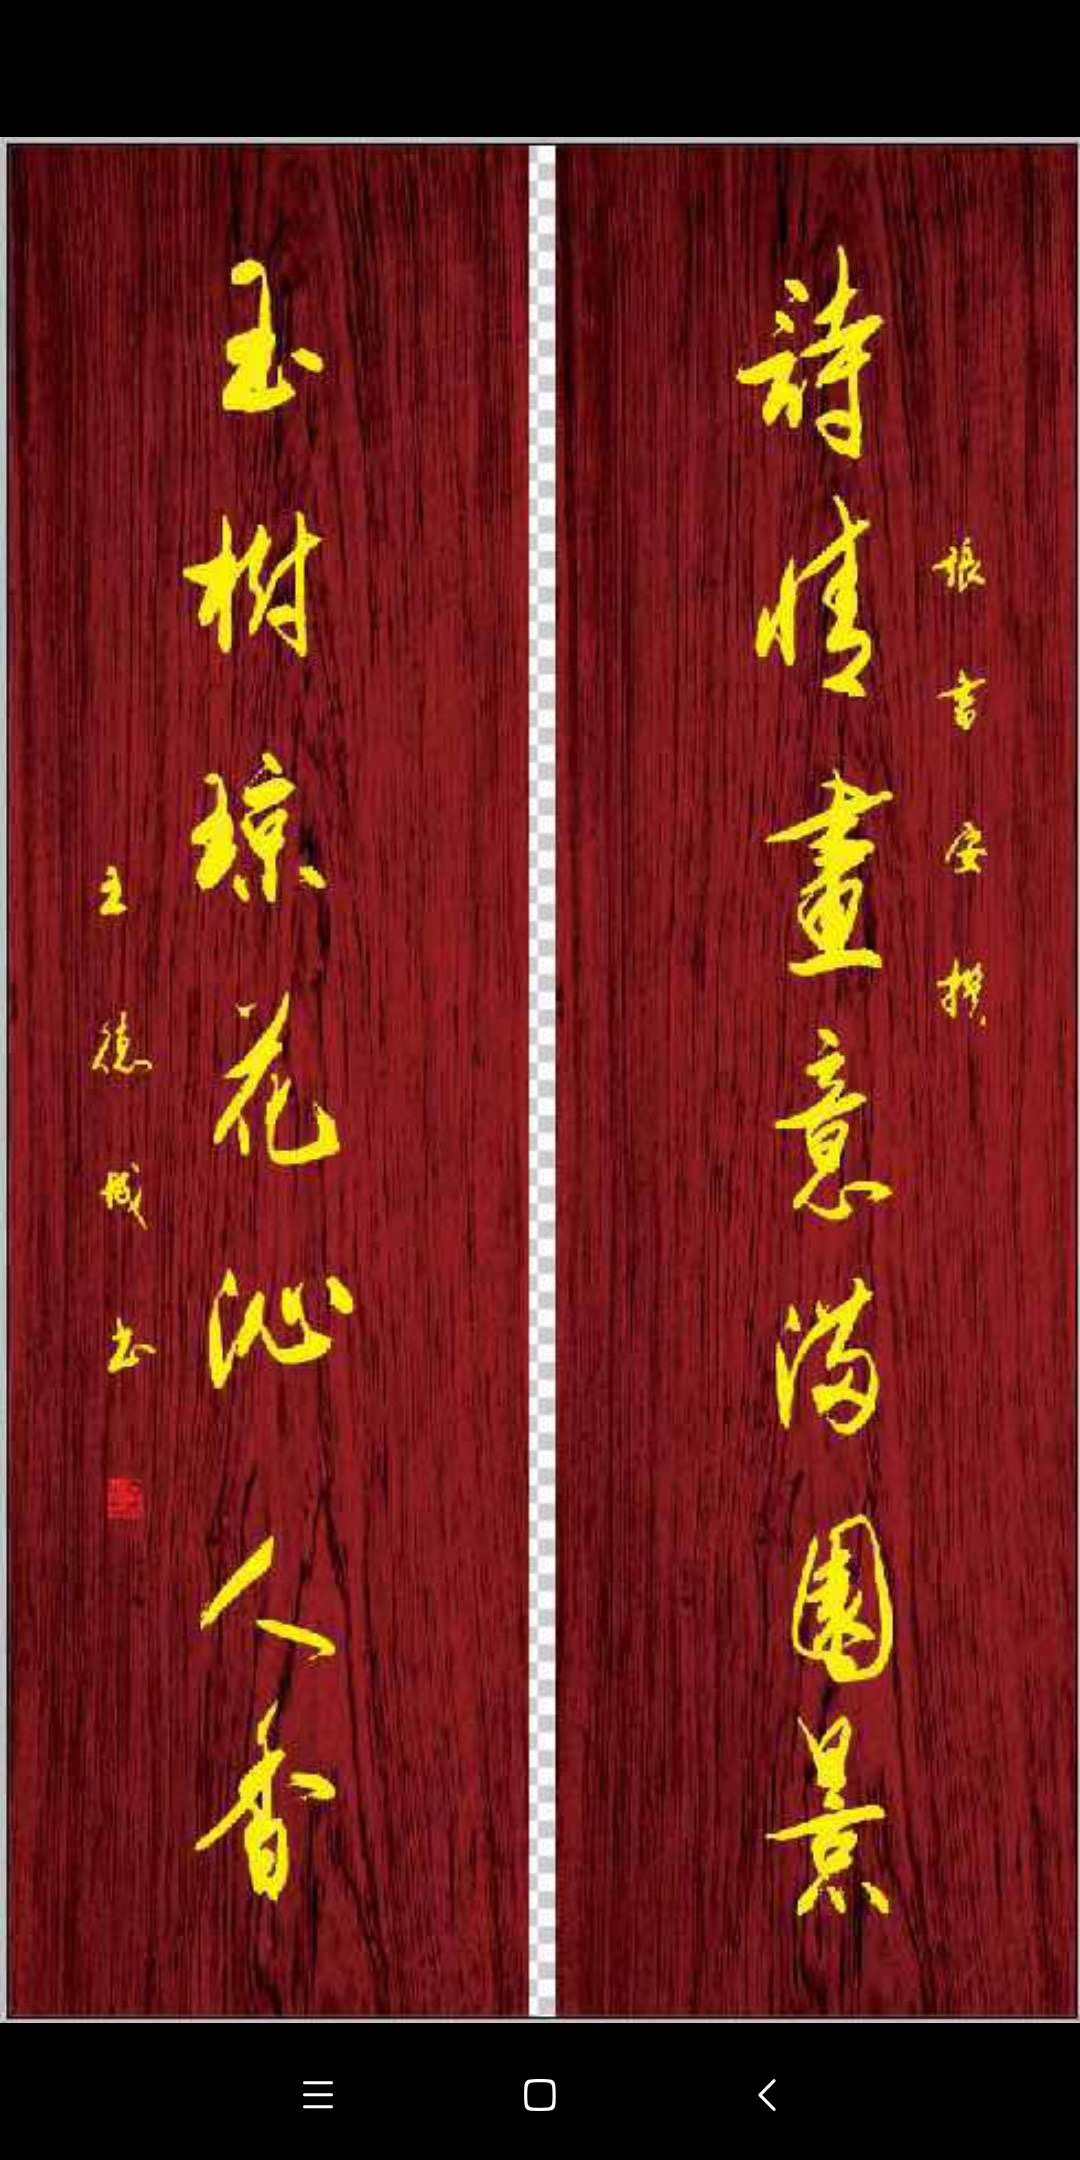 詩情畫意满園景
張吉安撰
玉樹琼花沁人香
王德城书